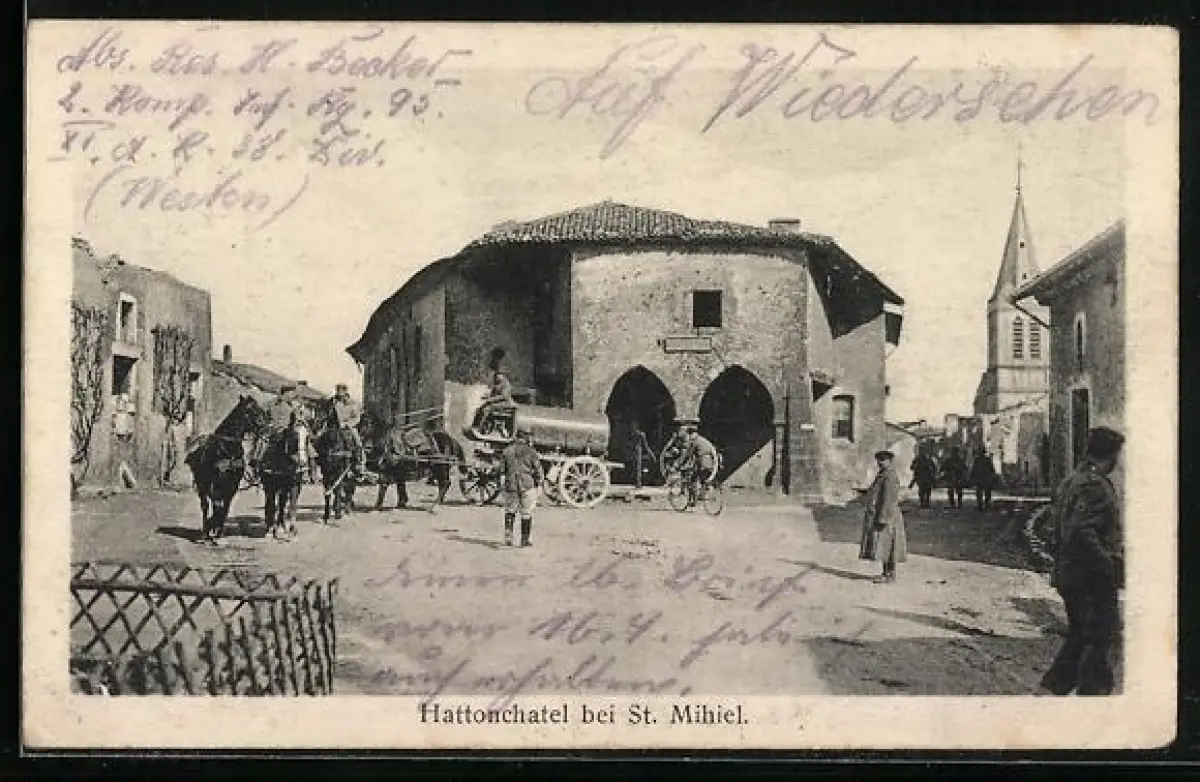 Abs. Res. H. Becker
2. Komp. Inf. Rg. 95.
XI. A. K. 38. Div.
(Westen)
Auf Wiedersehen
lb. Brief
vom 16.4. hab
auch erhalten.
Hattonchatel bei St. Mihiel.